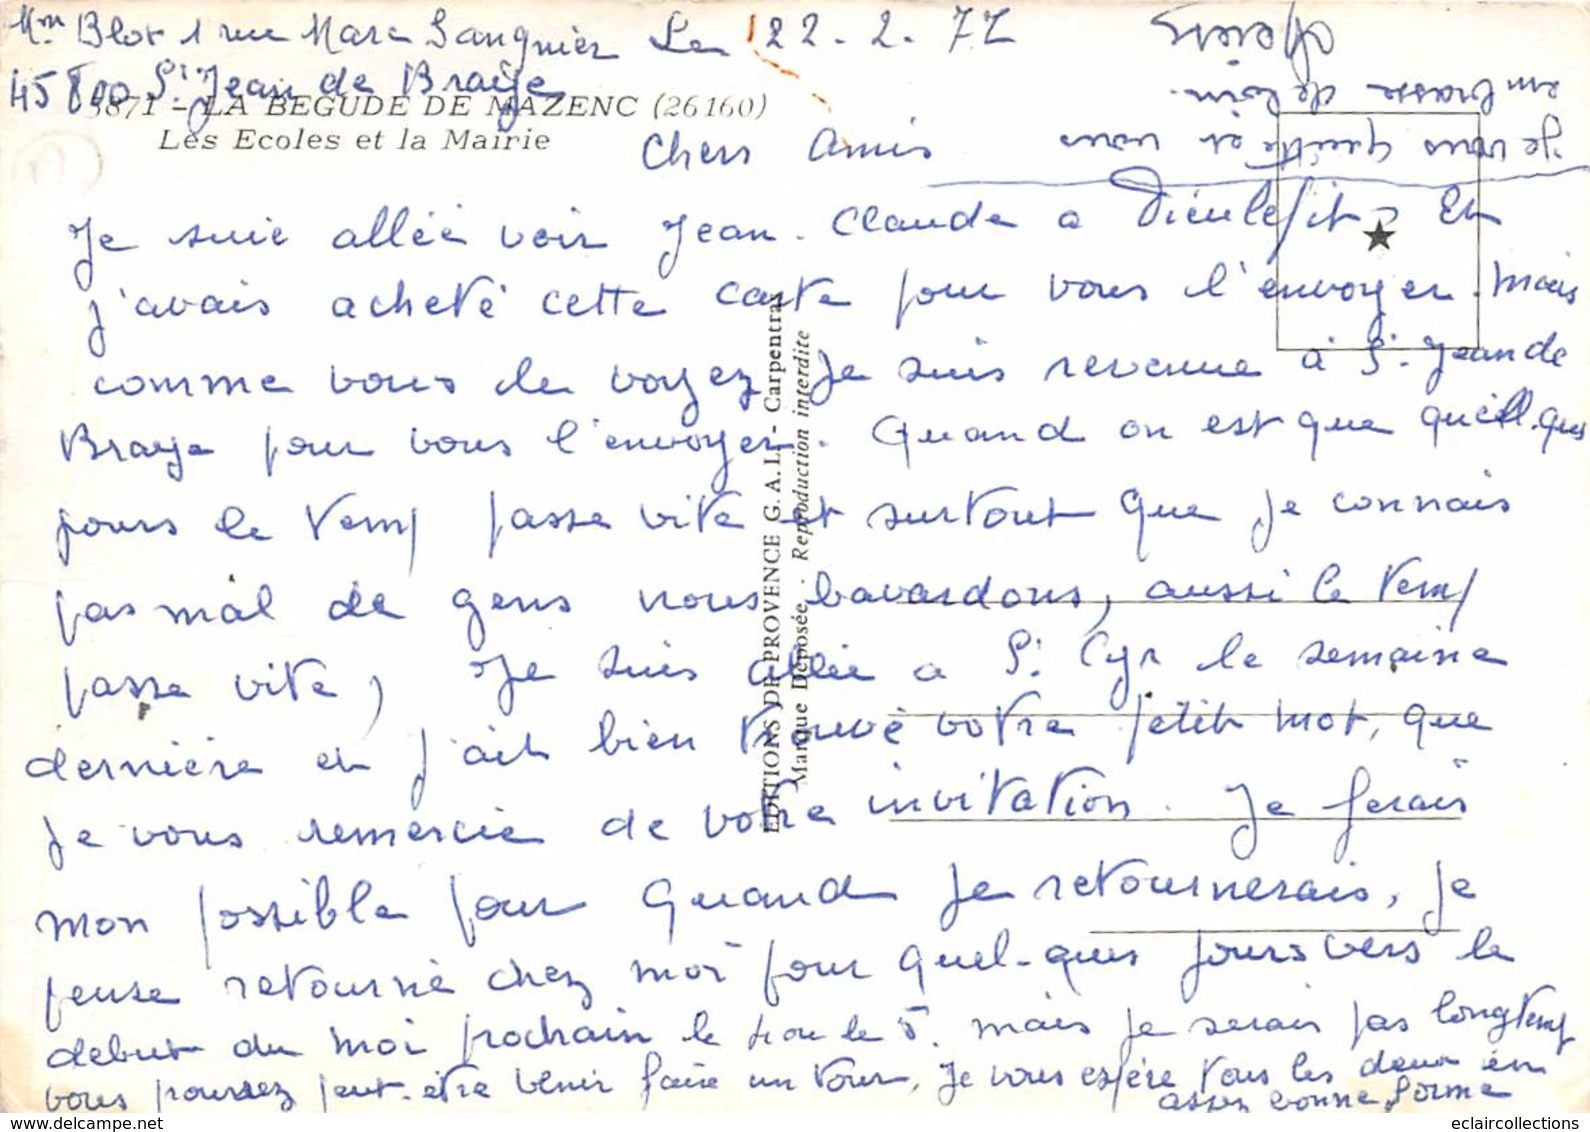 Mme Blot 1 rue Marc Sangnier Le 22-2.77
45800 St Jean de Braye
5871 - LA BEGUDE DE MAZENC (26160)
Les Ecoles et la Mairie
Chers Amis
Je suie allée voir Jean-Claude a Dieulefit - Et
j'avais acheté cette carte pour vous l'envoyer. Mais
comme vous le voyez Je suis revenue à St. Jean de
Braye pour vous l'envoyer. Quand on est que quelques
jours le temp passe vite et surtout que je connais
pas mal de gens nous bavardons, aussi le temp
passe vite, Je suis allée a St. Cyr la semaine
dernière et j'ait bien trouvé votre petit mot, que
Je vous remercie de votre invitation. Je ferais
mon possible pour quand je retournerais, je
pense retourné chez moi pour quel-ques jours vers le
debut du moi prochain le 4 ou le 5. mais je serais pas longtemp
vous pourrez peut-être venir faire un tour, Je vous espère tous les deux en
assez bonne forme
Je vous quitte et vous
embrasse de loin.
EDITIONS DE PROVENCE G.A.L. - Carpentras
Marque Déposée - Reproduction interdite
eclaircollections